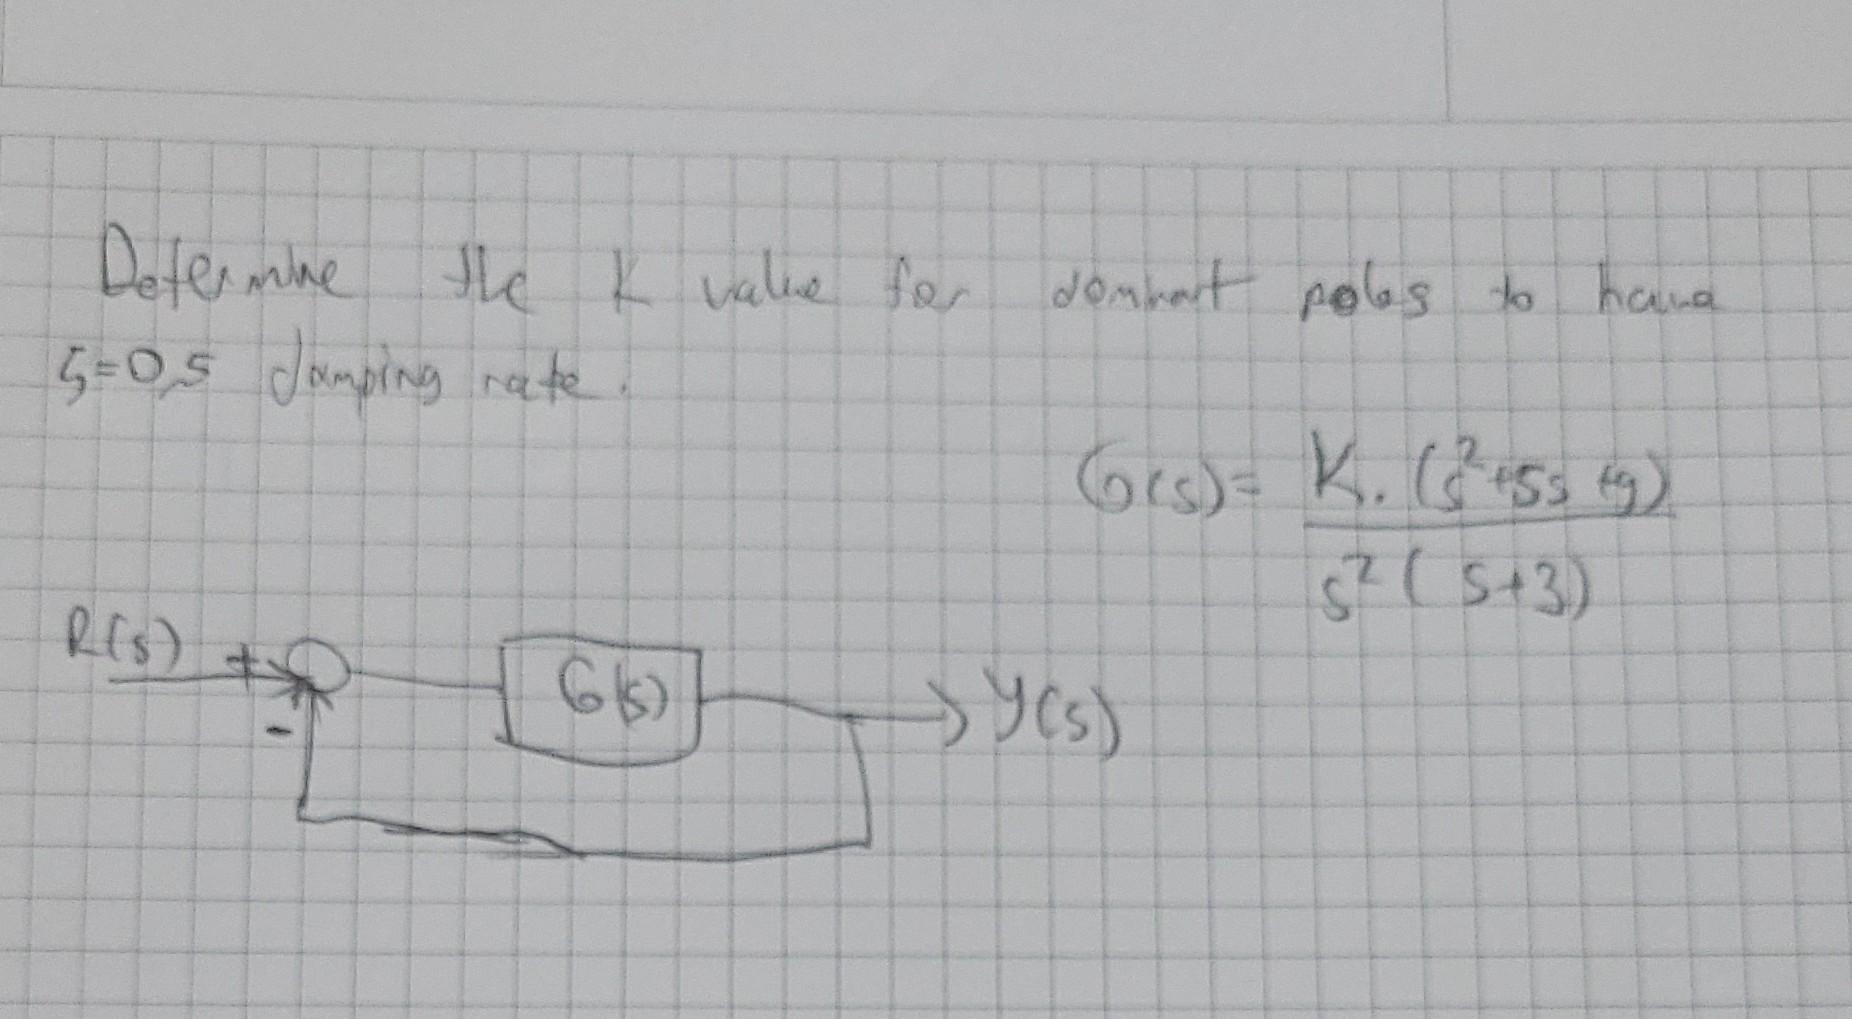 Determine the K value for dominant poles to have
ζ=0,5 damping rate.
G(s)= K.(s²+5s+9)
s²(s+3)
R(s) +
G(s)
Y(s)
-